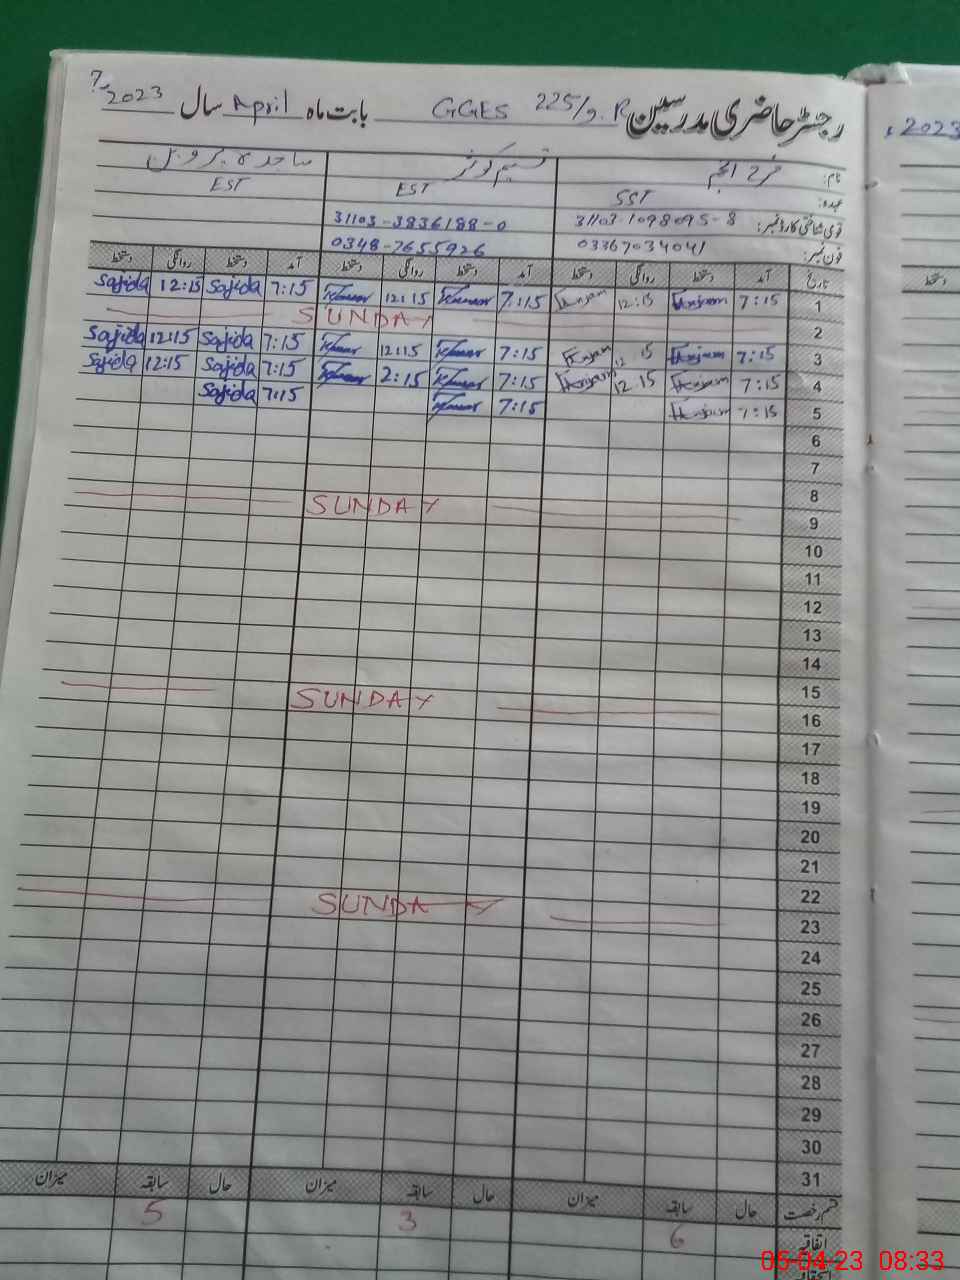 رجسٹر حاضری مدرسین GGES 225/9.R بابت ماہ April سال 2023
نام: فرح انجم نسیم کوثر ساجدہ پروین
عہدہ: SST EST EST
قومی شناختی کارڈ نمبر: 31103-1098095-8 31103-3836188-0
فون نمبر: 03367034041 0348-7655926
تاریخ آمد دستخط روانگی دستخط آمد دستخط روانگی دستخط آمد دستخط روانگی دستخط
1 7:15 Fanjum 12:15 Fanjum 7:15 12:15 7:15 Sajida 12:15 Sajida
2 SUNDAY
3 7:15 Fanjum 12:15 Fanjum 7:15 12:15 7:15 Sajida 12:15 Sajida
4 7:15 Fanjum 12:15 Fanjum 7:15 2:15 7:15 Sajida 12:15 Sajida
5 7:15 Fanjum 7:15 7:15 Sajida
6
7
8
9 SUNDAY
10
11
12
13
14
15
16 SUNDAY
17
18
19
20
21
22
23 SUNDAY
24
25
26
27
28
29
30
31
قسم رخصت حال سابقہ میزان حال سابقہ میزان حال سابقہ میزان
اتفاقیہ 6 3 5
2023ء
دستخط
05-04-23 08:33